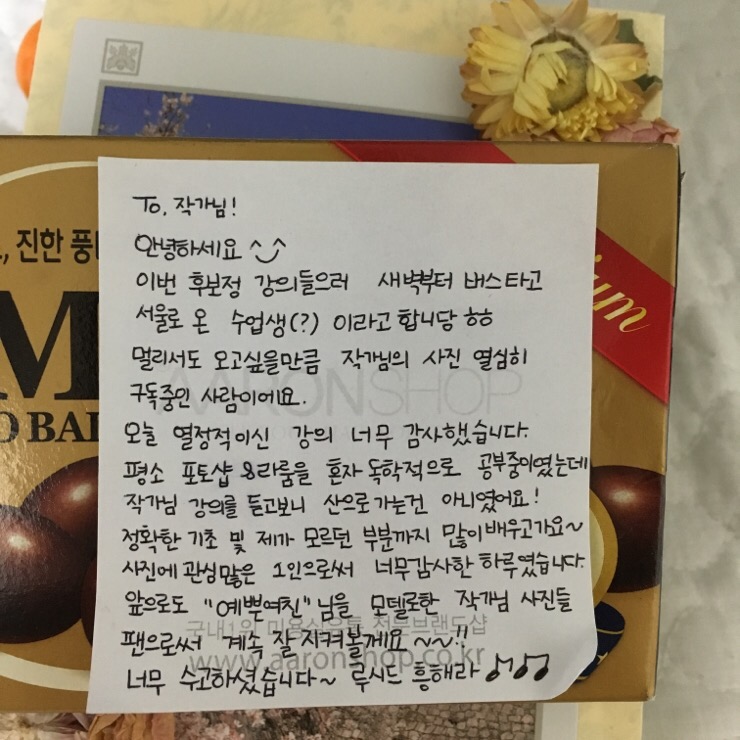 To. 작가님!
안녕하세요 ^^
이번 후보정 강의들으러 새벽부터 버스타고
서울로 온 수업생(?) 이라고 합니당 ㅎㅎ
멀리서도 오고싶을만큼 작가님의 사진 열심히
구독중인 사람이에요.
오늘 열정적이신 강의 너무 감사했습니다.
평소 포토샵 &라룸을 혼자 독학적으로 공부중이였는데
작가님 강의를 듣고보니 산으로가는건 아니였어요!
정확한 기초 및 제가 모르던 부분까지 많이배우고가요~
사진에 관심많은 1인으로써 너무감사한 하루였습니다.
앞으로도 "예쁜여친"님을 모델로한 작가님 사진들
팬으로써 계속 잘지켜볼게요~~!!
너무 수고하셨습니다~ 루시드 흥해라 ♪♫♫
, 진한 풍
M
O BAL
ium
AARONSHOP
국내1위 미용실유통 전문브랜드샵
www.aaronshop.co.kr